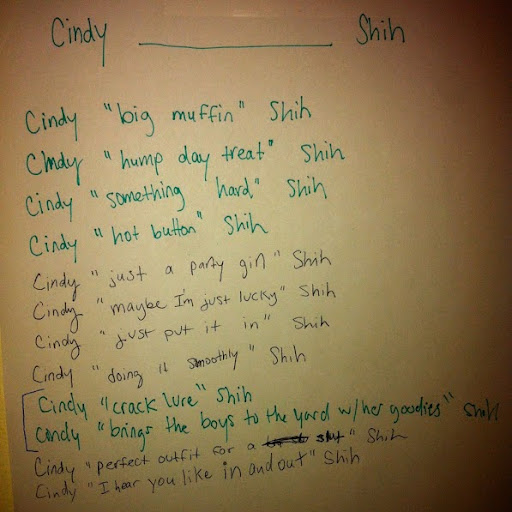 Cindy ____________ Shih
Cindy "big muffin" Shih
Cindy "hump day treat" Shih
Cindy "something hard" Shih
Cindy "hot button" Shih
Cindy "just a party girl" Shih
Cindy "maybe I'm just lucky" Shih
Cindy "just put it in" Shih
Cindy "doing it smoothly" Shih
Cindy "crack lure" Shih
Cindy "brings the boys to the yard w/her goodies" Shih
Cindy "perfect outfit for a slut" Shih
Cindy "I hear you like in and out" Shih